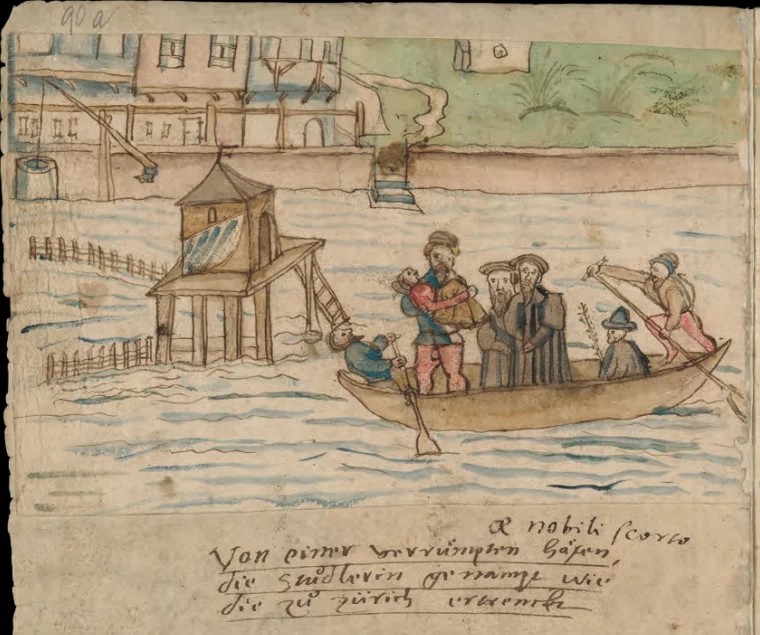 90a
& nobili scorto
Von einer verrůmpten häxen,
die Stůdlerin genampt wie
die zů Zürich ertrenckt